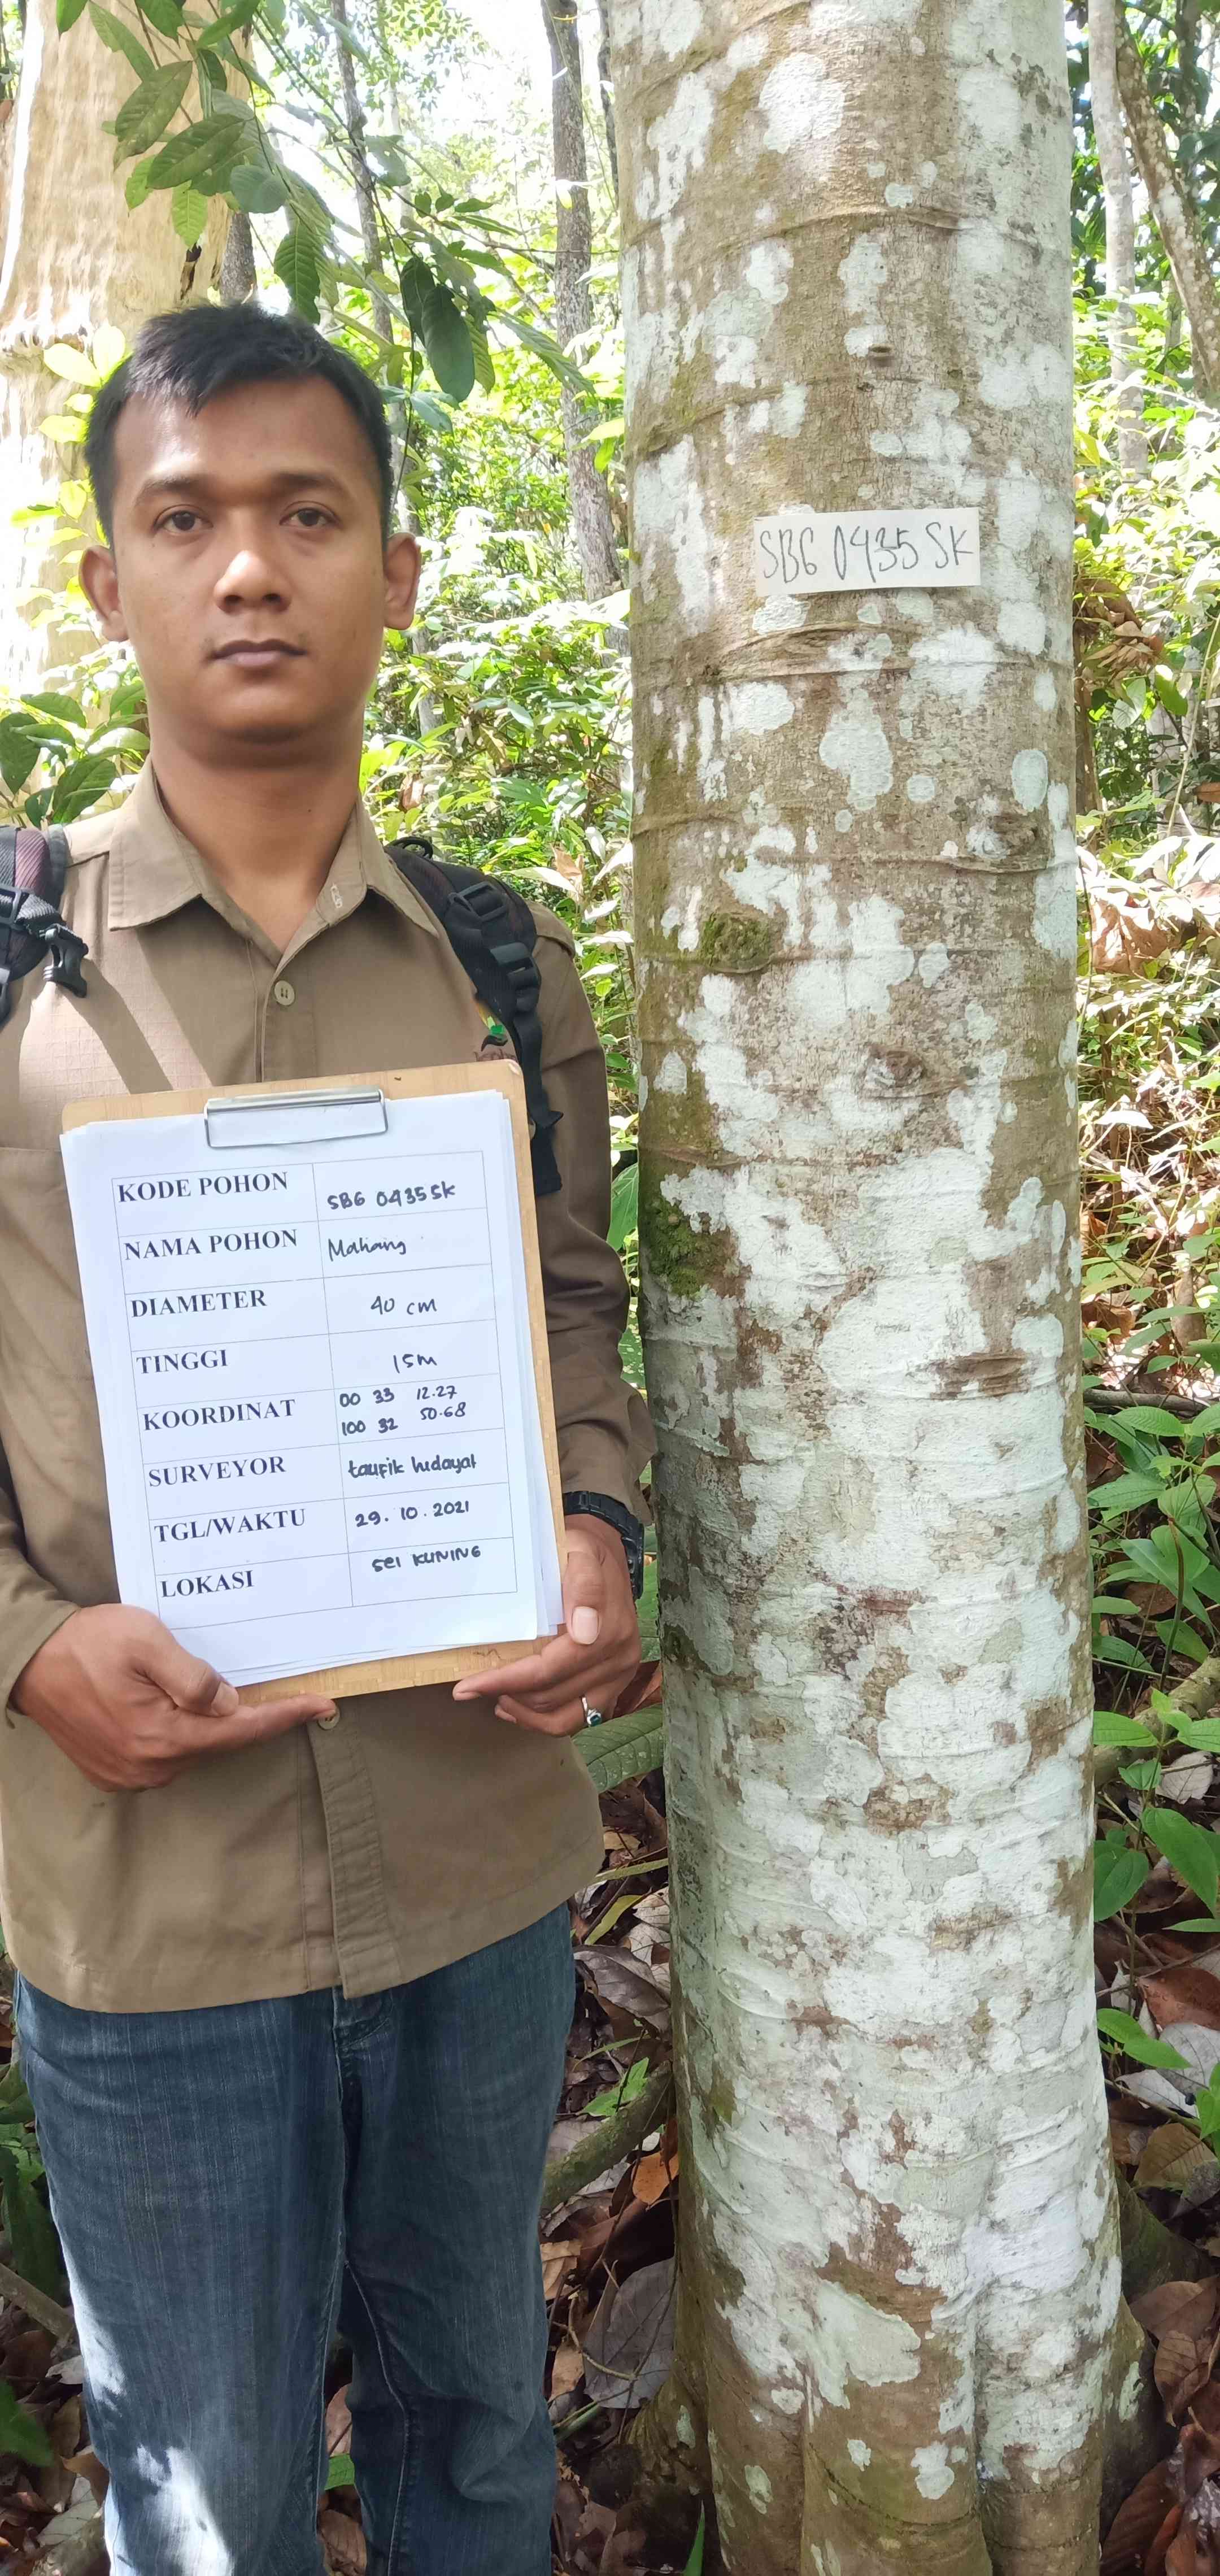 SBG 0435 SK
KODE POHON SBG 0435 SK
NAMA POHON Mahang
DIAMETER 40 cm
TINGGI 15M
KOORDINAT 00 33 12.27
100 32 50.68
SURVEYOR taufik hidayat
TGL/WAKTU 29.10.2021
LOKASI SEI KUNING